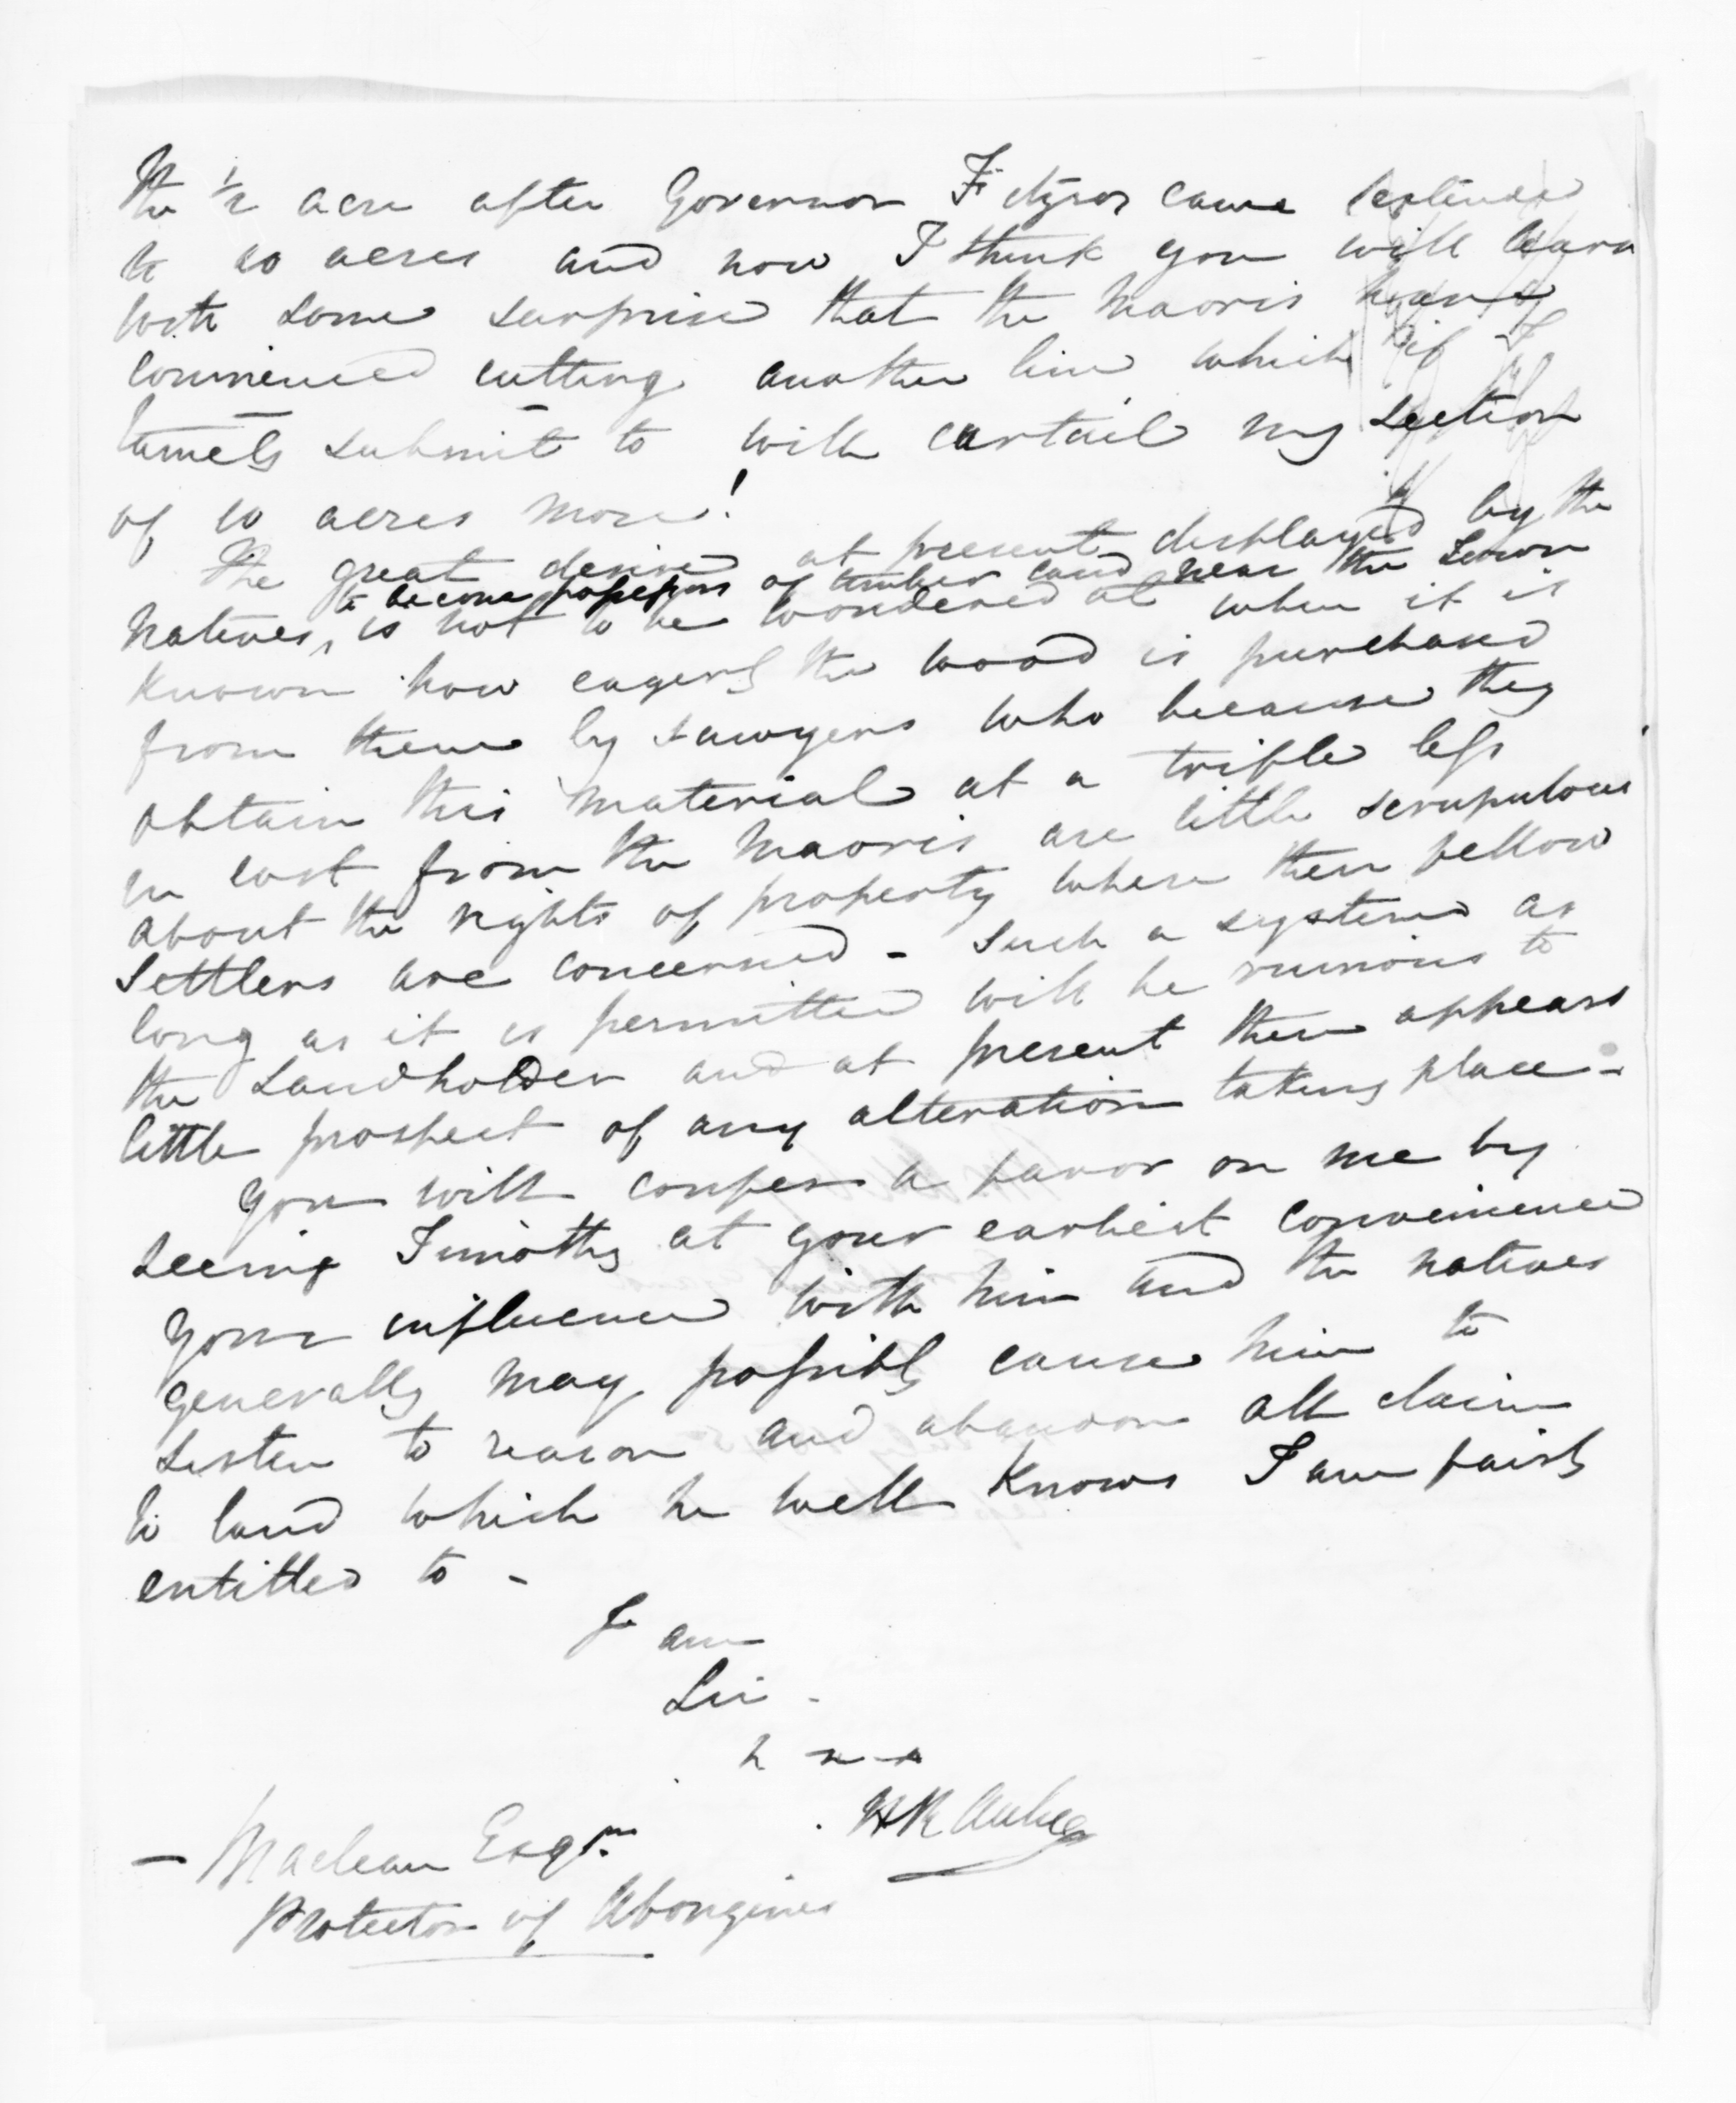 the 1/2 acre after Governor Fitzroy came extended
to 20 acres and now I think you will learn
with some surprise that the Maoris have
commenced cutting another line which if I
tamely submit to will curtail my section
of 10 acres more!
The great desire at present displayed by the
to become possessors of timber land near the Town
natives, is not to be wondered at when it is
known how eagerly the wood is purchased
from them by sawyers who because they
obtain this material at a trifle less
in cost from the Maoris are little scrupulous
about the rights of property where their fellow
settlers are concerned - Such a system as
long as it is permitted will be ruinous to
the Landholder and at present there appears
little prospect of any alteration taking place -
You will confer a favor on me by
seeing Timothy at your earliest convenience
your influence with him and the natives
generally may possibly cause him to
listen to reason and abandon all claim
to land which he well knows I am fairly
entitled to -
I am
Sir -
H R Aubrey
- Maclean Esqr.
Protector of Aborigines